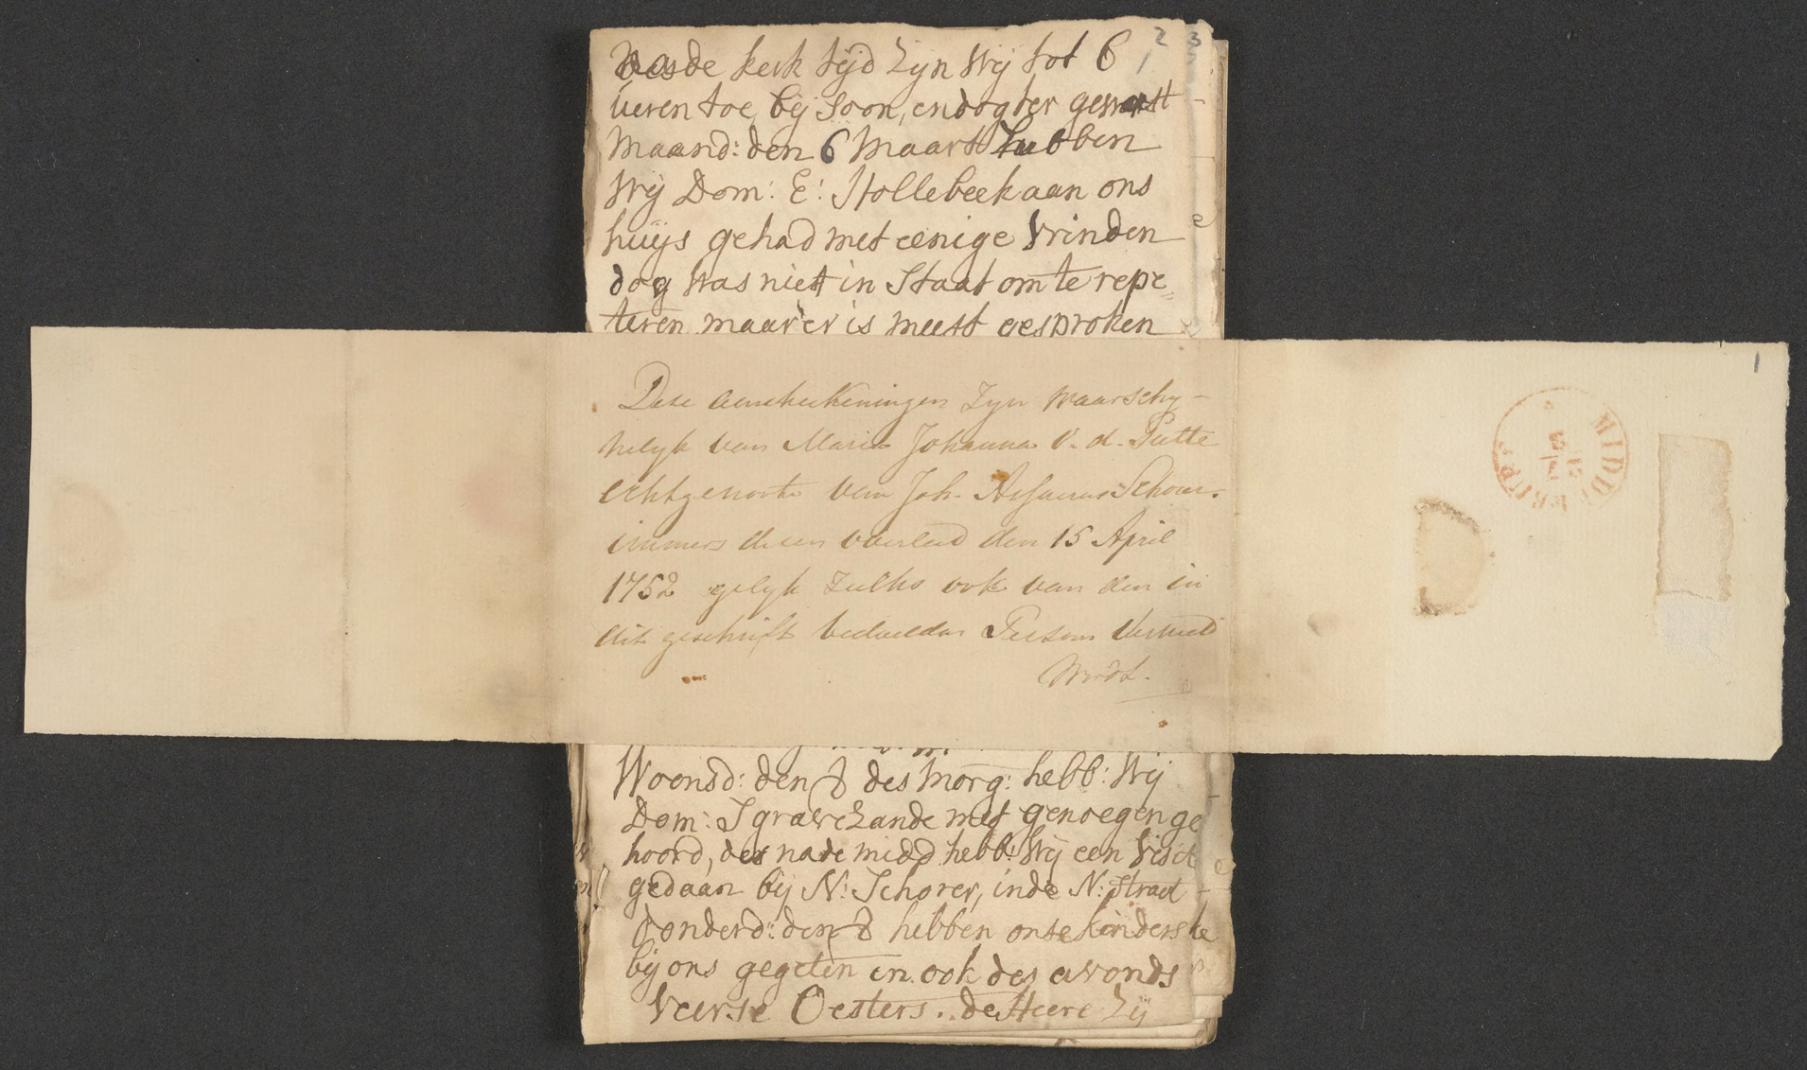 nasde kerk tijd zijn wij tot 6
ueren toe, bij soon, en dogter geweest
Maand: den 6 Maart hebben
wij Dom: E: Hollebeek aan ons
huijs gehad met eenige vrinden
dog was niett in Staat om te repe=
teren maar er is meest gesproken
Deze aenteekeningen zyn waarschy-
nelyk van Maria Johanna v. d. Putte
echtgenoote van Joh. Assuerus Schorer.
immers deeze overleed den 15 April
1752 gelyk zulks ook van den in
dit geschrift bedoelden Persoon vermeld
wordt.
Woonsd: den 8 des morg: hebb: wij
Dom: Sgravezande met genoegen ge
hoord, des nade midd hebb: wij een visit
gedaan bij N: Schorer, inde N: straat
donderd: den 8 hebben onse kinders
bij ons gegeten en ook des avonds
Veerse Oesters. de Heere zij
2 3
1
MIDDELBURG